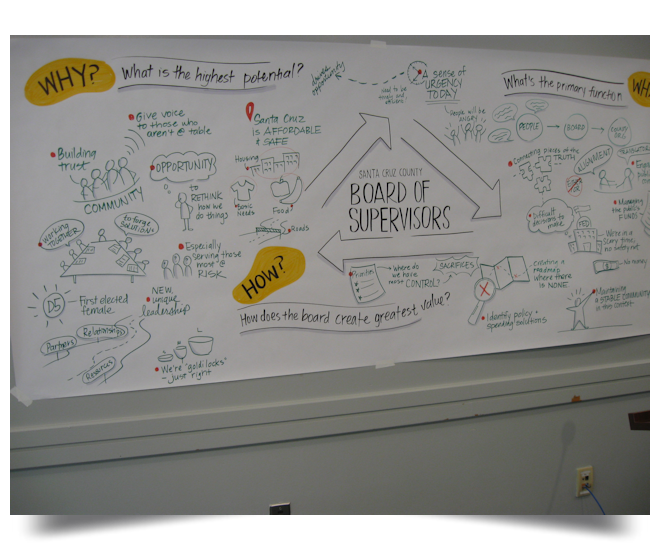 WHY?
What is the highest potential?
Give voice
to those who
aren't @ table
Building
trust
COMMUNITY
OPPORTUNITY
to
RETHINK
how we
do things
Santa Cruz
is AFFORDABLE
& SAFE
Housing
Basic
needs
Food
Roads
working
TOGETHER
to forge
SOLUTIONS
Especially
serving those
most @
RISK
D5
First elected
female
NEW,
unique
leadership
Partners
Relationships
Resources
We're "goldilocks"
- just right
opportunity
A sense of
URGENCY
TODAY
need to be
People will be
ANGRY
SANTA CRUZ COUNTY
BOARD OF
SUPERVISORS
HOW?
How does the board create greatest value?
Priorities
Where do we
have most
CONTROL?
SACRIFICES
creating a
roadmap
where there
is NONE
X
Identify policy +
spending solutions
What's the primary function
PEOPLE
BOARD
Connecting pieces of the
TRUTH
ALIGNMENT
Difficult
decisions to
make
Managing
the public
FUNDS
We're in a
scary time,
no safety net
Maintaining
a STABLE COMMUNITY
in this context